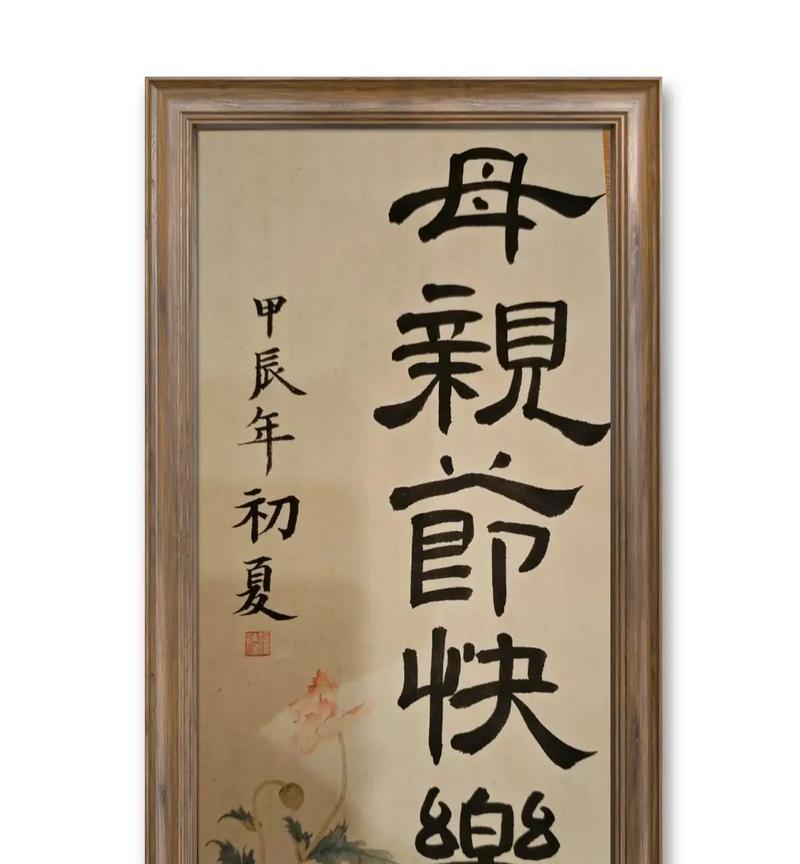 母親節快樂
甲辰年初夏